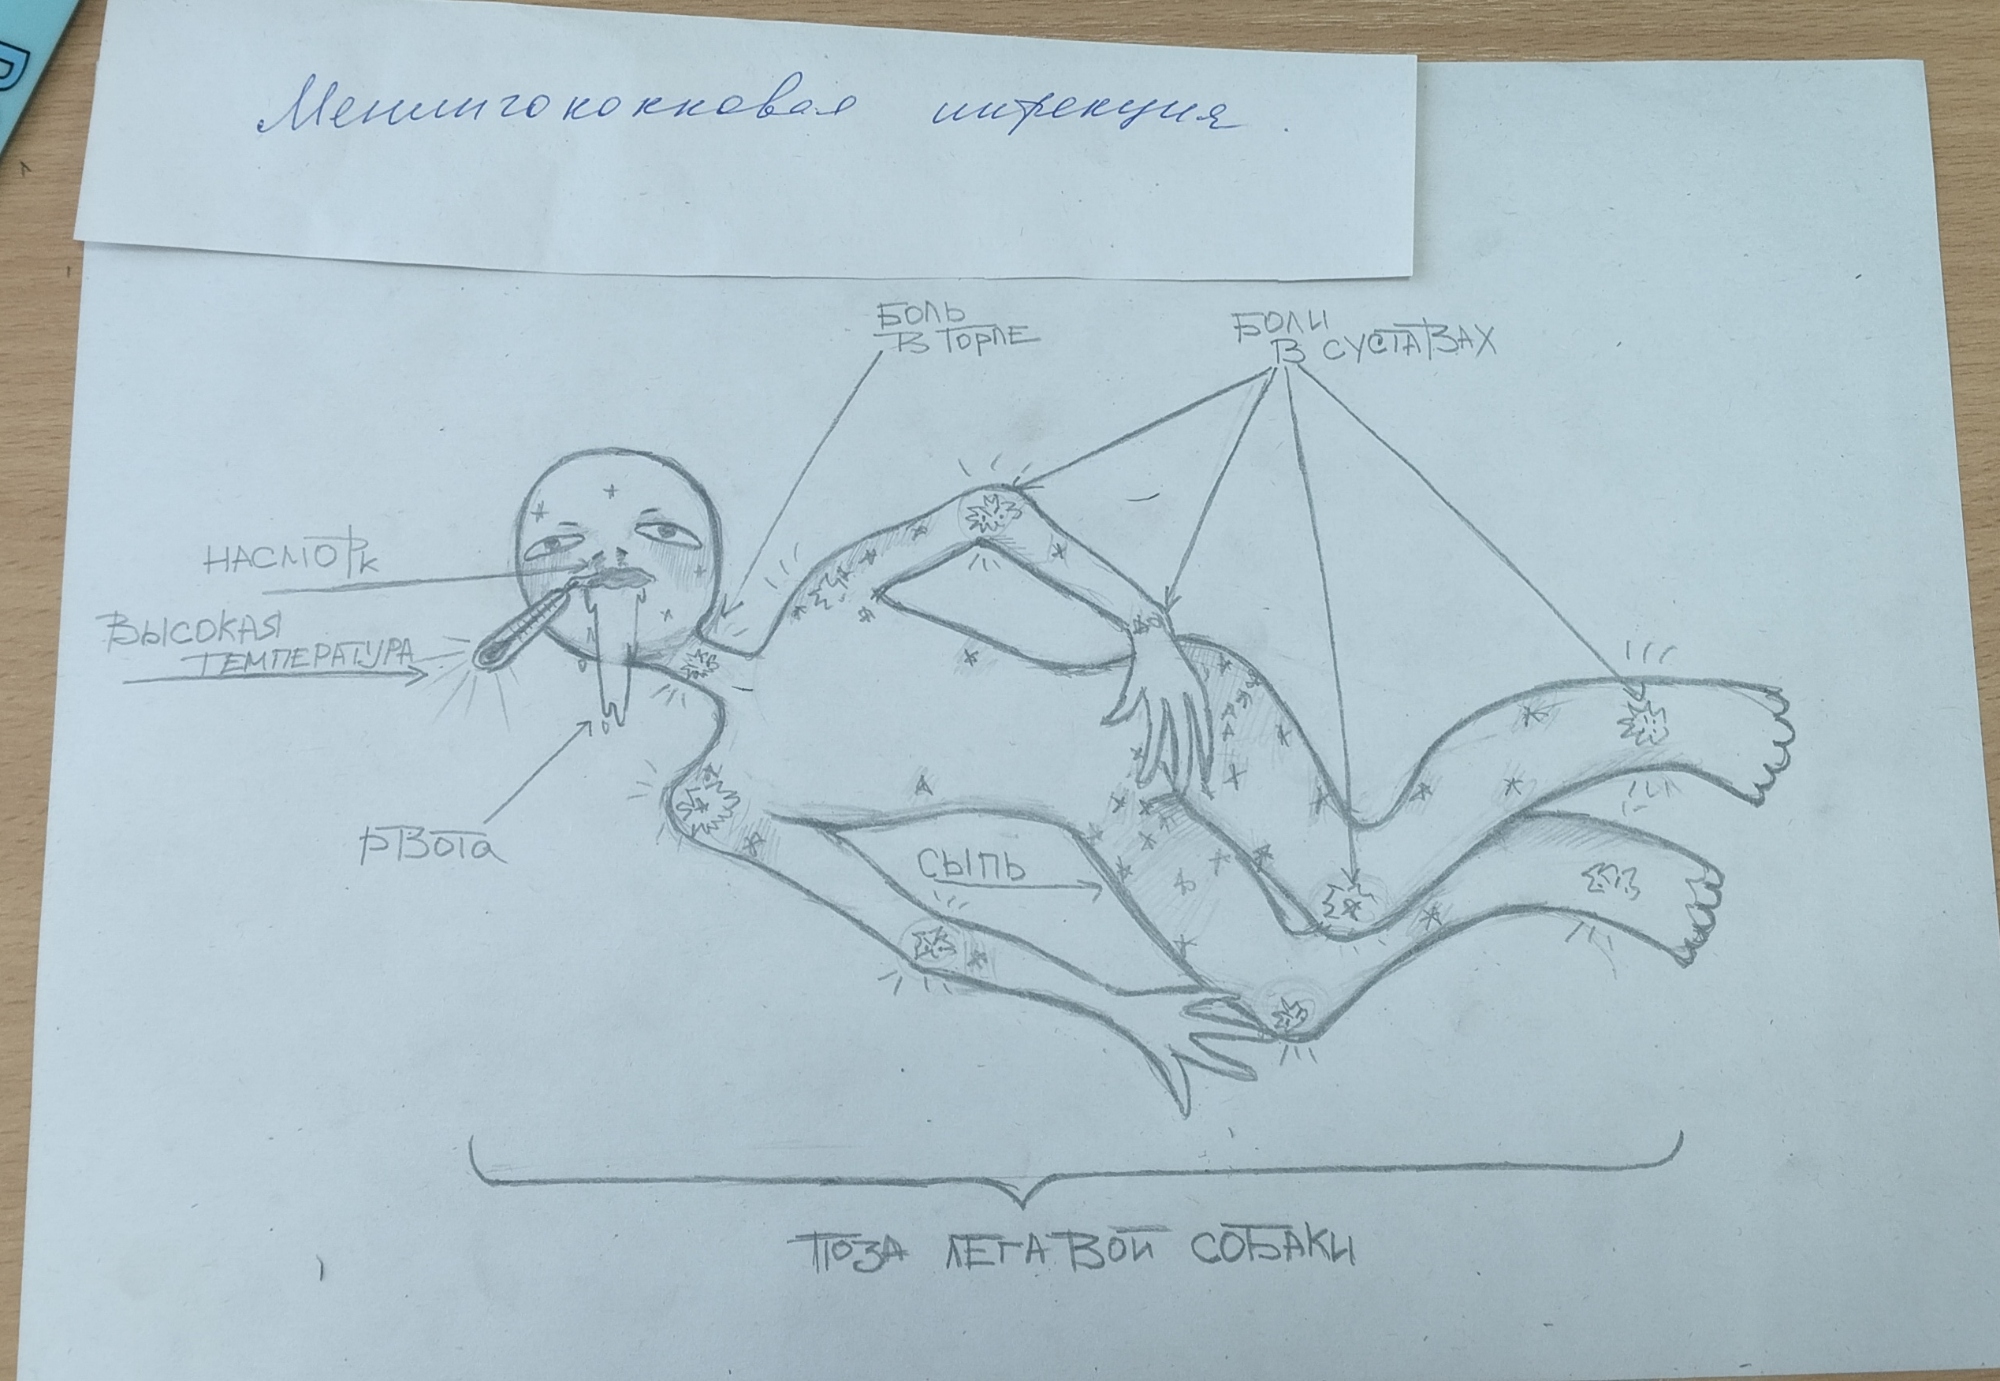 Менингококковая инфекция.
БОЛЬ
В ГОРЛЕ
БОЛИ
В СУСТАВАХ
НАСМОРК
ВЫСОКАЯ
ТЕМПЕРАТУРА
РВОТА
СЫПЬ
ПОЗА ЛЕГАВОЙ СОБАКИ